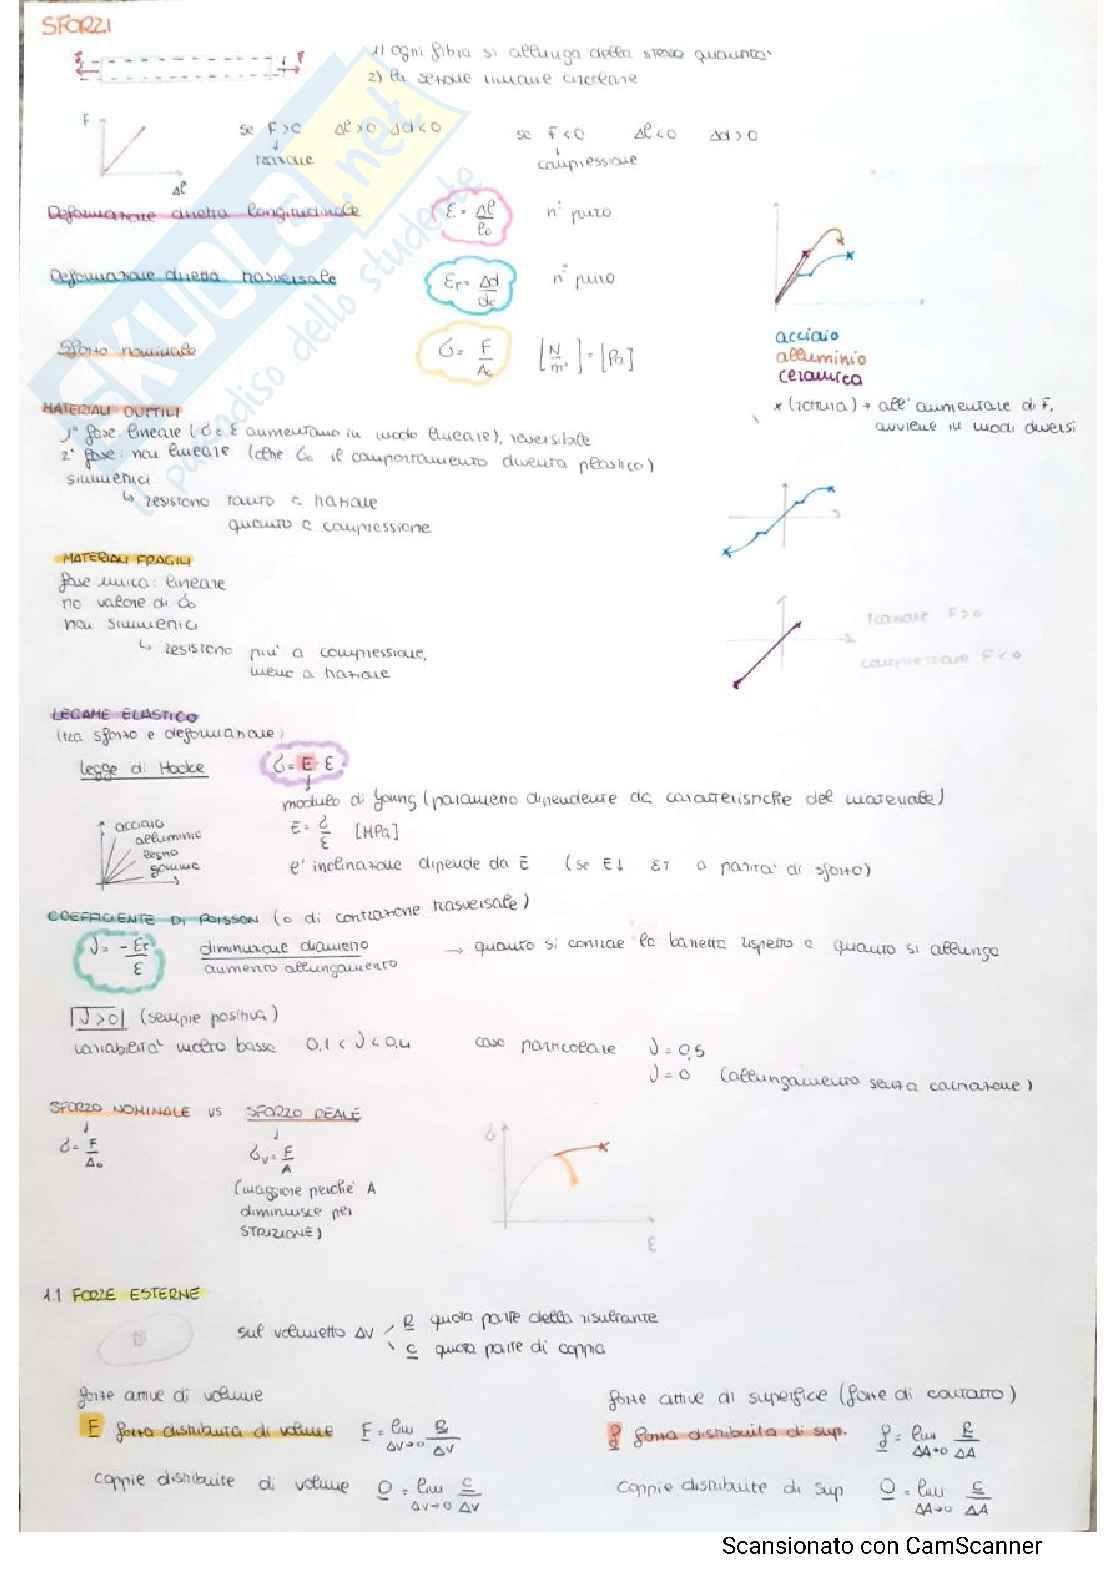 SFORZI
1) ogni fibra si allunga della stessa quantità
2) la sezione rimane circolare
F
Δl
se F>0 Δl>0 Δd<0
trazione
se F<0 Δl<0 Δd>0
compressione
Deformazione diretta longitudinale ε = Δl/l₀ n° puro
Deformazione diretta trasversale εr = Δd/d₀ n° puro
Sforzo nominale σ = F/A₀ [N/m²] = [Pa]
acciaio
alluminio
ceramica
x (rottura) → all' aumentare di F,
avviene in modi diversi
MATERIALI DUTTILI
1° fase lineare (σ e ε aumentano in modo lineare), reversibile
2° fase: non lineare (oltre σ₀ il comportamento diventa plastico)
simmetrici
↳ resistono tanto a trazione
quanto a compressione
MATERIALI FRAGILI
fase unica: lineare
no valore di σ₀
non simmetrici
↳ resistono piu' a compressione,
meno a trazione
trazione F>0
compressione F<0
LEGAME ELASTICO
(tra sforzo e deformazione)
legge di Hooke σ = E ε
modulo di Young (parametro dipendente da caratteristiche del materiale)
E = σ/ε [MPa]
l' inclinazione dipende da E (se E↓ ε↑ a parita' di sforzo)
acciaio
alluminio
legno
gomma
COEFFICIENTE DI POISSON (o di contrazione trasversale)
ν = -εr/ε diminuzione diametro/aumento allungamento → quanto si contrae la barretta rispetto a quanto si allunga
|ν>0| (sempre positiva)
variabilita' molto bassa 0,1 < ν < 0,4 caso particolare ν = 0,5
ν = 0 (allungamento senza contrazione)
SFORZO NOMINALE vs SFORZO REALE
σ = F/A₀
σv = F/A
(maggiore perche' A
diminuisce per
STRIZIONE)
σ
ε
1.1 FORZE ESTERNE
sul volumetto ΔV R quota parte della risultante
C quota parte di coppia
forze attive di volume
F forza distribuita di volume F = lim ΔV→0 R/ΔV
coppie distribuite di volume Q = lim ΔV→0 C/ΔV
forze attive di superfice (forze di contatto)
f forza distribuita di sup. f = lim ΔA→0 R/ΔA
coppie distribuite di sup Q = lim ΔA→0 C/ΔA
SKUOLA.net
il paradiso dello studente
Scansionato con CamScanner